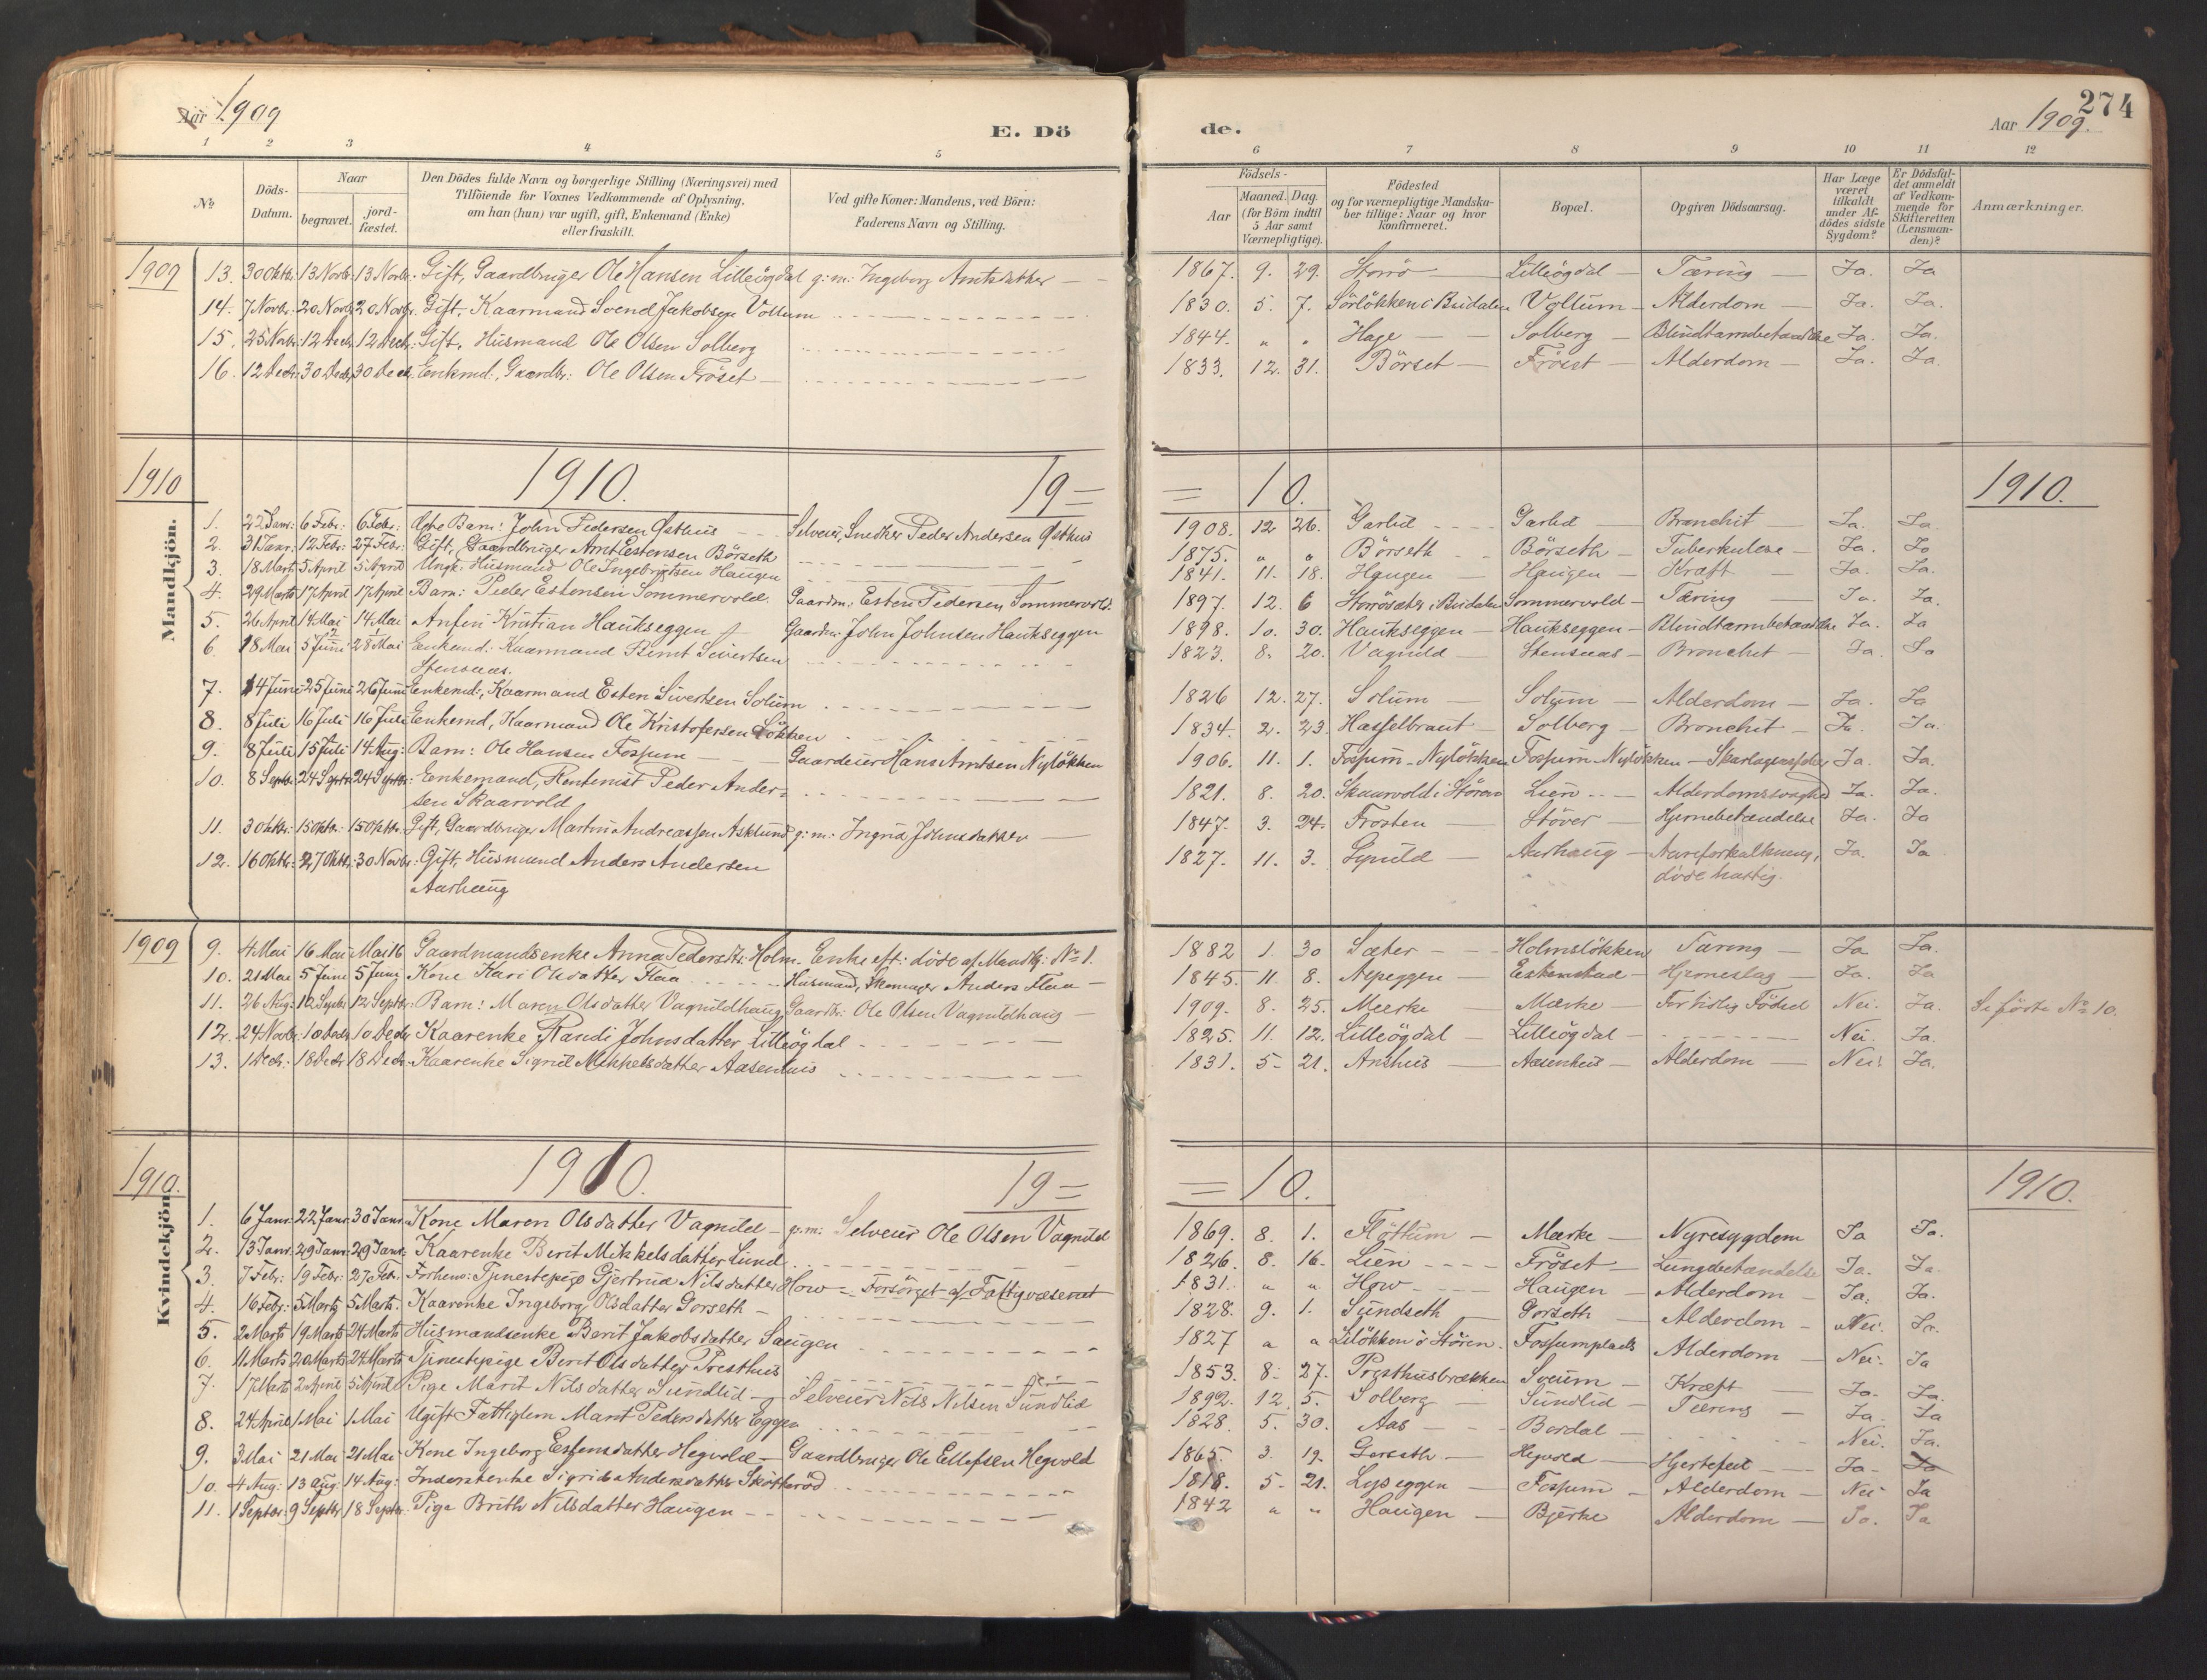 Aar 1909
E. Dö
de.
Aar 1909.
274
1 2 3 4 5 6 7 8 9 10 11 12
No
Döds-
Datum.
Naar
begravet.
jord-
fæstet.
Den Dödes fulde Navn og borgerlige Stilling (Næringsvei) med
Tilföiende for Voxnes Vedkommende af Oplysning,
om han (hun) var ugift, gift, Enkemand (Enke)
eller fraskilt.
Ved gifte Koner: Mandens, ved Börn:
Faderens Navn og Stilling.
Födsels-
Aar
Maaned. Dag.
(for Börn indtil
5 Aar samt
Værnepligtige).
Födested
og for værnepligtige Mandska-
ber tillige: Naar og hvor
konfirmeret.
Bopæl.
Opgiven Dödsaarsag.
Har Læge
været
tilkaldt
under Af-
dödes sidste
Sygdom?
Er Dödsfal-
det anmeldt
af Vedkom-
mende for
Skifteretten
(Lensman-
den)?
Anmærkninger.
1909 13. 30 Oktbr: 13 Novbr: 13 Novbr: Gift, Gaardbruger Ole Hansen Lilleögdal g: m: Ingeborg Arntsdatter 1867. 9. 29. Storrö Lilleögdal Tæring Ja. Ja
14. 7 Novbr: 20 Novbr 20 Novbr. Gift, Kaarmand Svend Jakobsen Vollum 1830. 5. 7. Sörlökken i Budalen Vollum Alderdom Ja. Ja.
15. 25 Novbr: 12 Decbr: 12 Decbr: Gift, Husmand Ole Olsen Solberg 1844. " " Hage Solberg Blindtarmbetændelse Ja. Ja.
16. 12 Decbr: 30 Decbr. 30 Decbr. Enkemd., Gaardbr: Ole Olsen Fröset 1833. 12. 31. Börset Fröset Alderdom Ja. Ja.
1910 1910. 19= =10. 1910.
Mandkjön.
1. 22 Janr: 6 Febr: 6 Febr: Barn: John Pedersen Østhus Selveier, Snedker Peder Andersen Østhus 1908. 12 26. Garlid Garlid Bronchit Ja. Ja.
2. 31 Janr. 12 Febr: 27 Febr: Gift, Gaardbruger Arnt Estensen Börseth 1875. " " Börseth Börseth Tuberkulose Ja. Ja
3. 18 Marts 5 April 5 April Ungk. Husmand Ole Ingebrigtsen Haugen 1841. 11. 18. Haugen Haugen Kræft Ja. Ja.
4. 29 Marts 17 April 17 April Barn: Peder Estensen Sommervold. Gaardm: Esten Pedersen Sommervold. 1897. 12. 6 Storrösæter i Budalen Sommervold Tæring Ja. Ja.
5. 26 April 14 Mai 14 Mai Anfin Kristian Haukseggen Gaardm: John Johnsen Haukseggen 1898. 10. 30. Haukseggen Haukseggen Blindtarmbetændelse Ja. Ja
6. 18 Mai 5 Juni 28 Mai Enkemd: Kaarmand Bernt Sivertsen
Stensaas. 1823. 8. 20. Vagnild Stensaas Bronchit Ja. Ja
7. 14 Juni 25 Juni 26 Juni Enkemd:, Kaarmand Esten Sivertsen Solum 1826 12. 27. Solum Solum Alderdom Ja. Ja
8. 8 Juli 16 Juli 16 Juli Enkemd, Kaarmand Ole Kristofersen Lökken 1834. 2. 23. Hasselbraut Solberg Bronchit Ja. Ja.
9. 8 Juli 15 Juli 14 Aug: Barn: Ole Hansen Fossum Gaardeier Hans Arntsen Nylökken 1906. 11. 1. Fossum-Nylökken Fossum-Nylökken Skarlagensfeber Ja. Ja.
10. 8 Septbr 24 Septbr 24 Septbr: Enkemand, Rentenist Peder Ander-
sen Skaarvold 1821. 8. 20. Skaarvold i Stören Lien Alderdomssvaghed Ja. Ja.
11. 3 Oktbr: 15 Oktbr: 15 Oktbr: Gift, Gaardbruger Martin Andreassen Asklund g: m: Ingrid Johnsdatter 1847. 3. 24. Frosten Stöver Hjernebetændelse Ja. Ja
12. 16 Oktbr: 27 Oktbr: 30 Novbr: Gift, Husmand Anders Andersen
Aarhaug 1827. 11. 3. Gynild Aarhaug Aareforkalkning,
döde hastig. Ja. Ja
1909 9. 4 Mai 16 Mai Mai 16 Gaardmandsenke Anna Pedersdtr: Holm. Enke eft: döde af Mandkj: No 1. 1882 1. 30 Sæter Holmslökken Tæring Ja Ja.
10. 21 Mai 5 Juni 5 Juni Kone Kari Olsdatter Flaa Husmand, Skomager Anders Flaa 1845. 11. 8. Aspeggen Eskenstad Hjerneslag Ja. Ja
11. 26 Aug: 12 Septbr 12 Septbr. Barn: Maren Olsdatter Vagnildhaug Gaardbr: Ole Olsen Vagnildhaug 1909. 8. 25. Mærke Mærke For tidlig Födsel Nei. Ja. Se födte No 10.
12. 24 Novbr. 10 Decbr 10 Decbr Kaarenke Randi Johnsdatter Lilleögdal 1825. 11. 12. Lilleögdal Lilleögdal Nei. Ja.
13. 1 Decbr. 18 Decbr 18 Decbr. Kaarenke Sigrid Mikkelsdatter Aasenhus 1831. 5. 21. Anshus Aasenhus Alderdom Nei. Ja.
1910. 1910. 19= =10. 1910.
Kvindekjön.
1. 6 Janr. 22 Janr. 30 Janr. Kone Maren Olsdatter Vagnild g. m: Selveier Ole Olsen Vagnild 1869. 8. 1. Flöttum Mærke Nyresygdom Ja Ja.
2. 13 Janr. 29 Janr. 29 Janr. Kaarenke Berit Mikkelsdatter Lund 1826. 8. 16. Lien Fröset Lungebetændelse Ja. Ja.
3. 7 Febr: 19 Febr: 27 Feb. Forhenv: Tjenestepige Gjertrud Nilsdatter How Forsörget af Fattigvæsenet 1831. " " How Haugen Alderdom Ja. Ja.
4. 16 Febr: 5 Marts 5 Marts. Kaarenke Ingeborg Olsdatter Gorseth 1828. 9. 1. Sundseth Gorseth Alderdom Nei. Ja.
5. 2 Marts 19 Marts 24 Marts Husmandsenke Berit Jakobsdatter Saugen 1827 " " Lilökken i Stören. Fossumplads Alderdom Nei. Ja
6. 11 Marts 20 Marts 24 Marts Tjenestepige Berit Olsdatter Presthus 1853. 8. 27. Presthusbrækken Soeum Kræft Ja. Ja.
7. 17 Marts 2 April 5 April Pige Marit Nilsdatter Sundlid Selveier Nils Nilsen Sundlid 1892. 12. 5. Solberg Sundlid Tæring Ja. Ja
8. 24 April 1 Mai 1 Mai Ugift Fattiglem Marit Pedersdatter Eggen 1828. 5. 30. Aas Bordal Nei. Ja.
9. 3 Mai 21 Mai 21 Mai Kone Ingeborg Estensdatter Hegvold Gaardbruger Ole Ellefsen Hegvold 1865. 3. 19. Gorseth Hegvold Hjertefeil Ja Ja
10. 4 Aug: 13 Aug: 14 Aug: Inderstenke Sigrid Andersdatter Skotteröd 1818. 5. 21. Lyseggen Fossum Alderdom Nei Ja
11. 1 Septbr: 9 Septbr 18 Septbr. Pige Brith Nilsdatter Haugen 1842 " " Haugen Bjerke Alderdom Ja. Ja